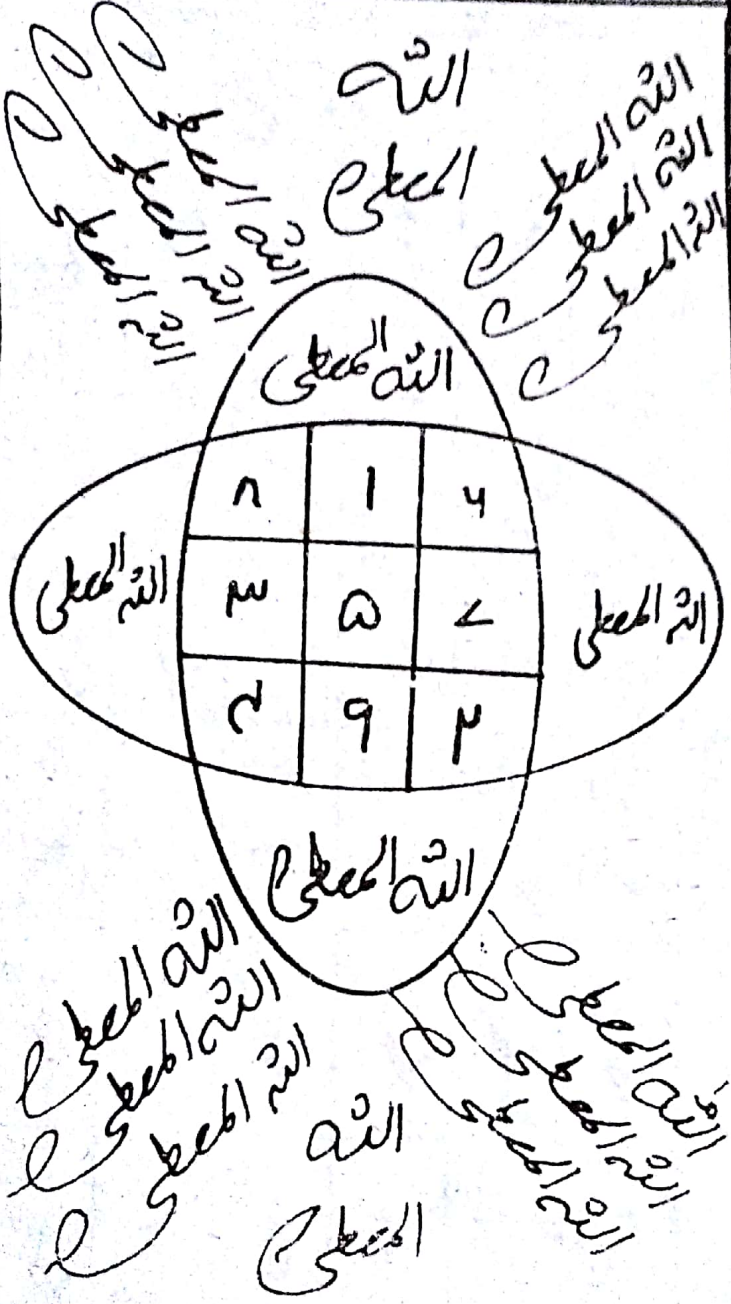 الله
المعطی
الله المعطی
الله المعطی
الله المعطی
الله المعطی
الله المعطی
الله المعطی
الله المعطی
۸ ۱ ۶
الله المعطی
۳ ۵ ۷
الله المعطی
۴ ۹ ۲
الله المعطی
الله المعطی
الله المعطی
الله المعطی
الله المعطی
الله المعطی
الله المعطی
الله
المعطی